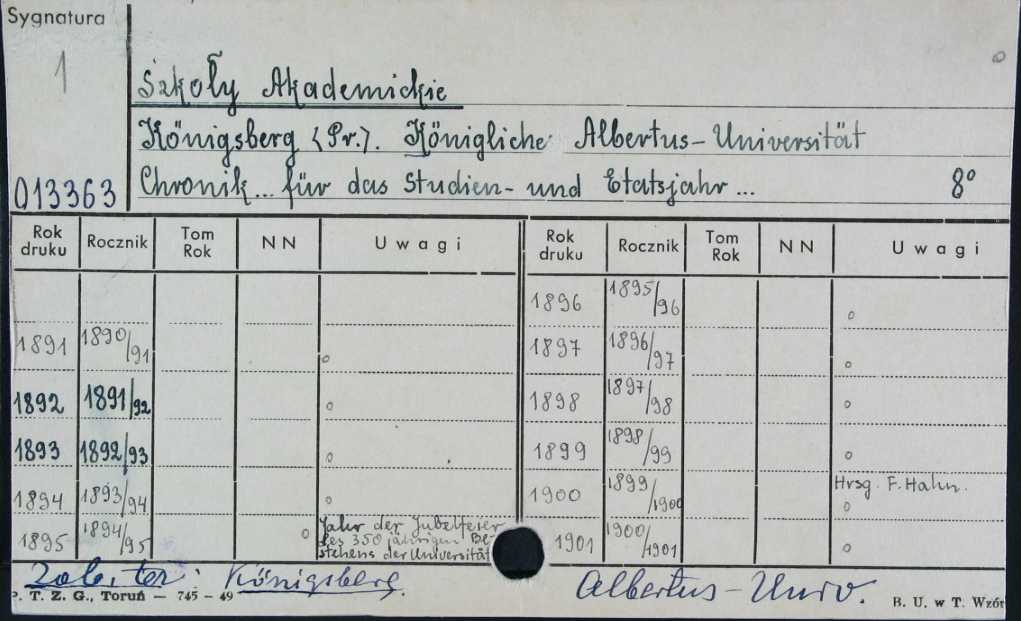 Sygnatura
1
Szkoły Akademickie
Königsberg (Pr.). Königliche Albertus-Universität
013363 Chronik... für das Studien- und Etatsjahr... 8°
Rok druku Rocznik Tom Rok N N Uwagi Rok druku Rocznik Tom Rok N N Uwagi
1896 1895/96 o
1891 1890/91 o 1897 1896/97 o
1892 1891/92 o 1898 1897/98 o
1893 1892/93 o 1899 1898/99 o
1894 1893/94 o 1900 1899/1900 Hrsg. F. Hahn. o
1895 1894/95 o Jahr der Jubelfeier
des 350 jährigen Be-
stehens der Universität
1901 1900/1901 o
Zob. też: Königsberg. Albertus-Univ.
P. T. Z. G., Toruń — 745 – 49 B. U. w T. Wzór